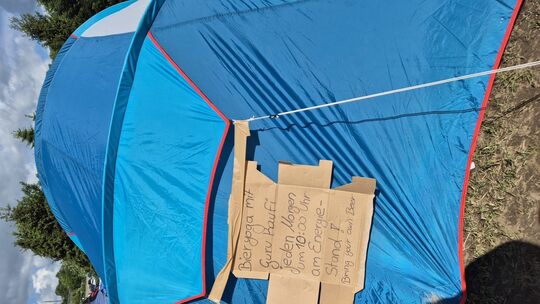 Bieryoga mit
Guru Paufi
Jeden Morgen
um 10:00 Uhr
am Energie-
Stand!
Bring your own Beer